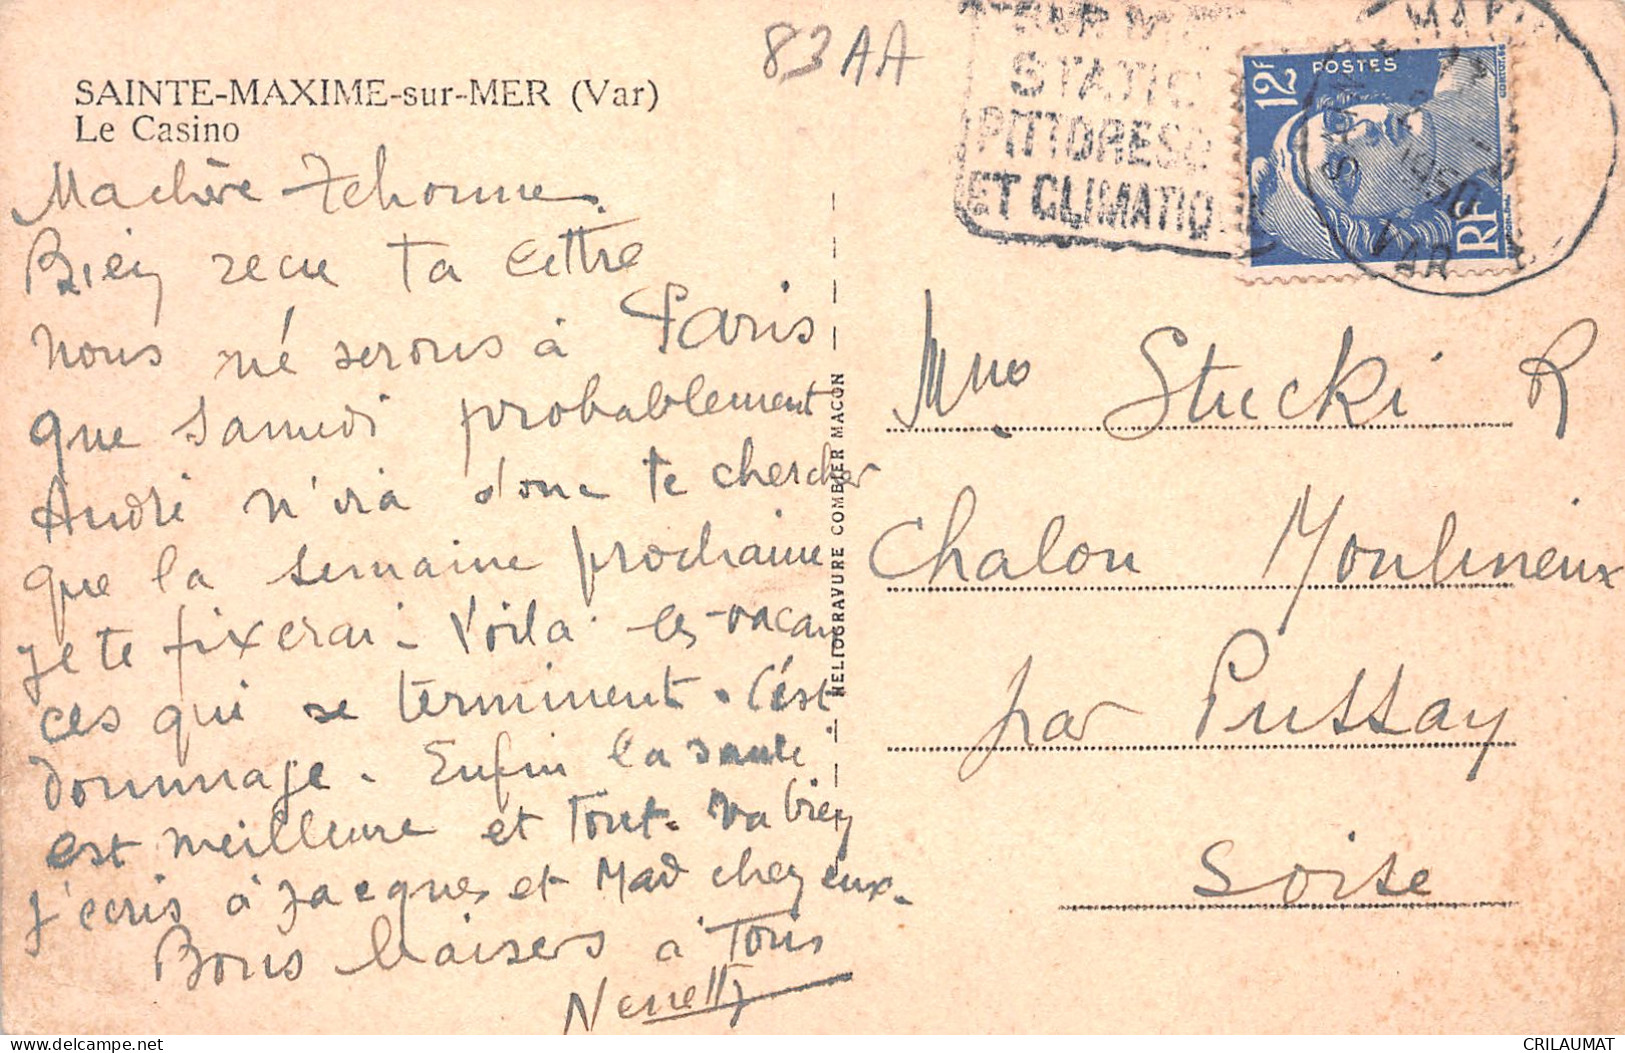 83 AA
SAINTE-MAXIME-sur-MER (Var)
Le Casino
STATIO
PITTORESQ
ET CLIMATIQUE
12F POSTES
RF
1950
VAR
Ma chère
Bien recu ta lettre
nous né serons à Paris
que samedi probablement
André n'ira donc te chercher
que la semaine prochaine
je te fixerai - Voila les vacan
ces qui se terminent. C'est
dommage. Enfin la santé
est meilleure et tout va bien
j'écris à Jacques et Mad chez eux.
Bons baisers à Tous
HELIOGRAVURE COMBIER MACON
Mme Stucki R
Chalou Moulineux
par Pussay
S Oise
delcampe.net
CRILAUMAT